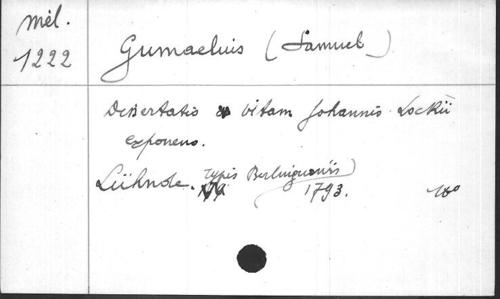 Mél.
1222
Gumaelius (Samuel)
Dissertatio vitam Johannis Lockii
exponens.
Lühnde. typis Berlingianis
1793. 4o